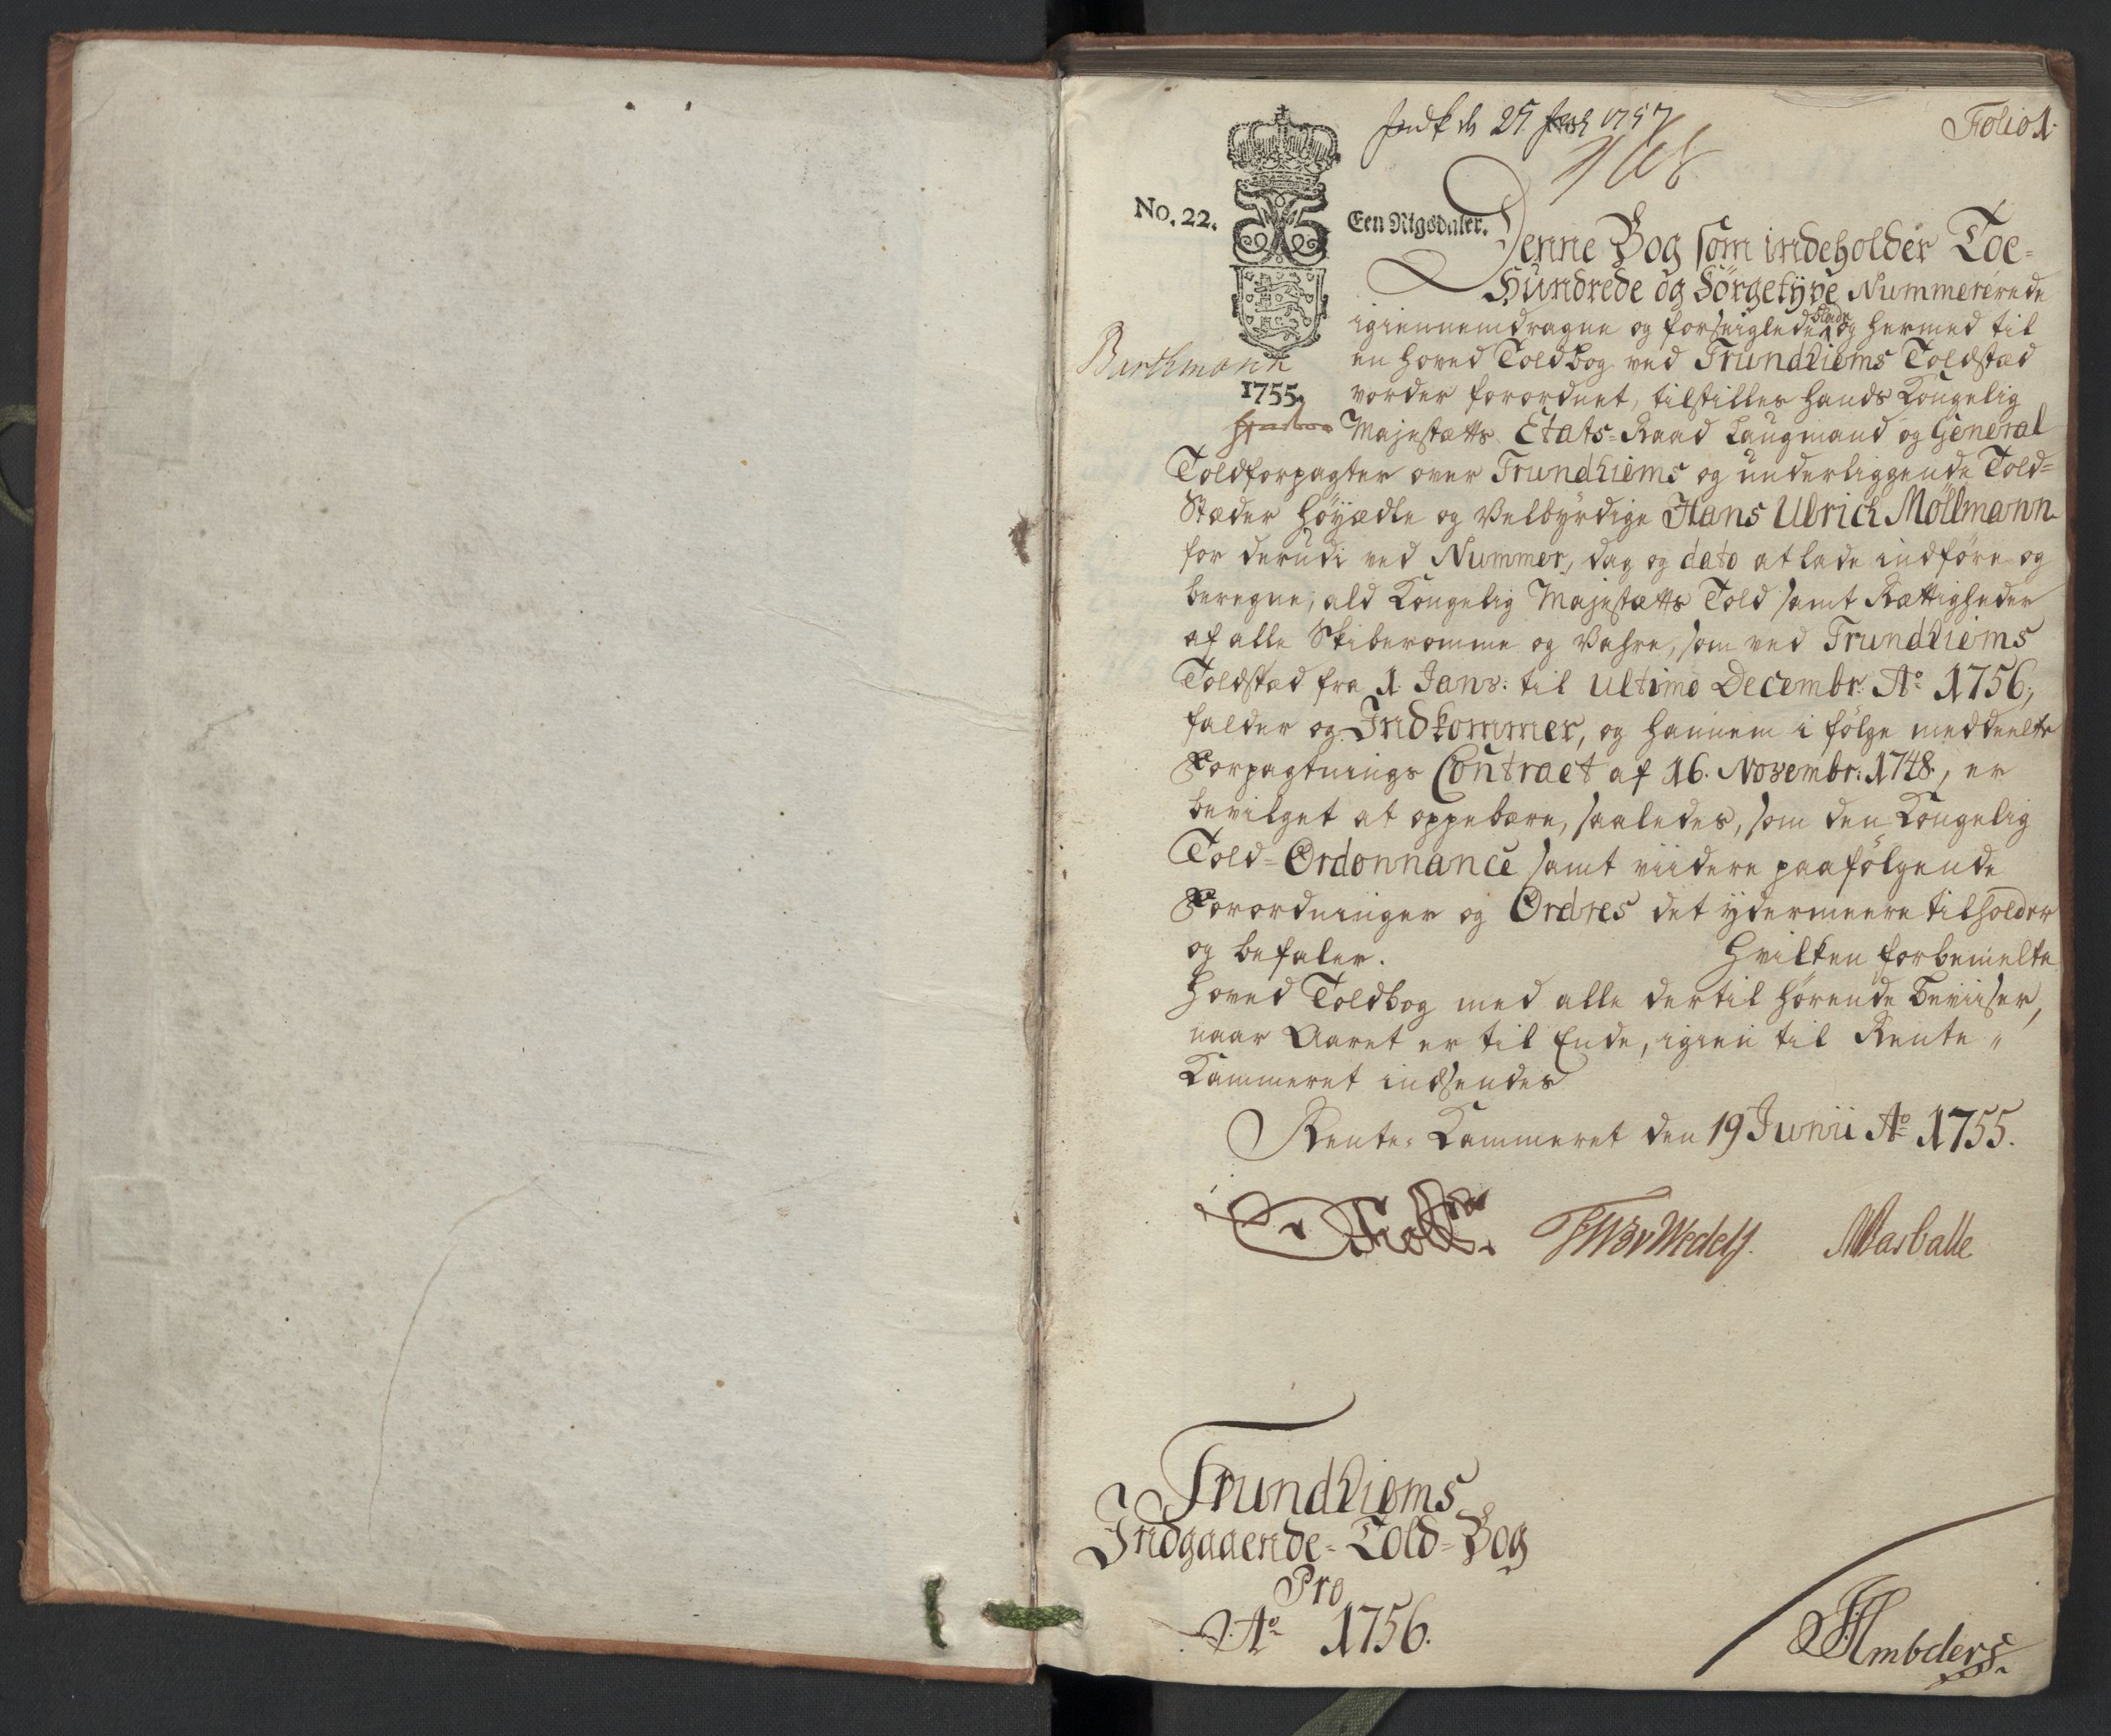 Folio 1.
Indk d 25 1757
No. 22.
Een Rigsdaler.
Denne Bog som indeholder Toe-
Hundrede og Sörgetÿve Nummererede
igiennemdragne og forseiglede Blade og hermed til
en hoved Toldbog ved Trundhiems Toldstæd
Barthmann
1755.
vorder forordnet, tilstilles Hands Kongelig
Majestætts Etats-Raad Laugmand og General
Toldforpagter over Trundhiems og underliggende Told-
Stæder Höÿædle og Velbÿrdige Hans Ulrich Möllmann
for derudi ved Nummer, dag og dato at lade indföre og
beregne, ald Kongelig Majestætts Told samt Rættigheder
af alle Skiberomme og Vahre, som ved Trundhiems
Toldstæd fra 1. Janv: til ultimo Decembr: Ao 1756,
falder og Indkommer, og hannem i fölge meddeelte
Forpagtnings Contract af 16. Novembr: 1748, er
bevilget at oppebære, saaledes, som den Kongelig
Told-Ordonnance samt viidere paafölgende
Forordninger og Ordres det ÿdermeere tilholder
og befaler. Hvilken forbemelte
Hoved Toldbog med alle dertil hörende Beviiser,
naar Aaret er til Ende, igien til Rente-
Kammeret indsendes
Rente-Kammeret den 19 Junii Ao 1755.
Marballe
Trundhiems
Indgaaende-Told-Bog
Pro
Ao 1756.